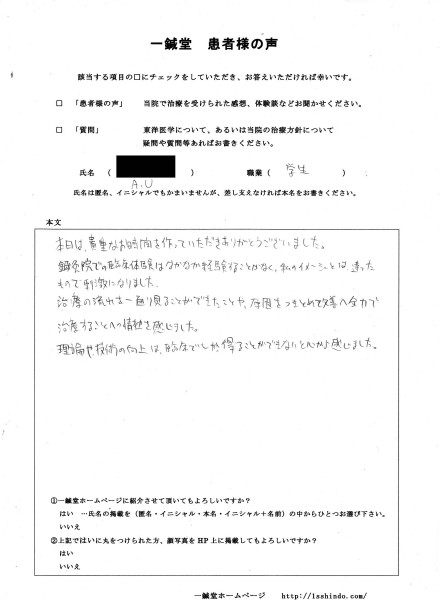 一鍼堂 患者様の声
該当する項目の口にチェックをしていただき、お答えいただければ幸いです。
□ 「患者様の声」 当院で治療を受けられた感想、体験談などお聞かせください。
□ 「質問」 東洋医学について、あるいは当院の治療方針について
疑問や質問等あればお書きください。
氏名 ( ) 職業 ( 学生 )
A.U
氏名は匿名、イニシャルでもかまいませんが、差し支えなければ本名をお書きください。
本文
本日は、貴重なお時間を作っていただきありがとうございました。
鍼灸院での臨床体験はなかなか経験することがなく、私のイメージとは、違った
もので刺激になりました。
治療の流れを一通り見ることができたことや、原因をつきとめて改善へ全力で
治療することへの情熱を感じました。
理論や技術の向上は、臨床でしか得ることができないと心から感じました。
①一鍼堂ホームページに紹介させて頂いてもよろしいですか？
はい …氏名の掲載を（匿名・イニシャル・本名・イニシャル＋名前）の中からひとつお選び下さい。
いいえ
②上記ではいに丸をつけられた方、顔写真を HP 上に掲載してもよろしいですか？
はい
いいえ
一鍼堂ホームページ http://1sshindo.com/